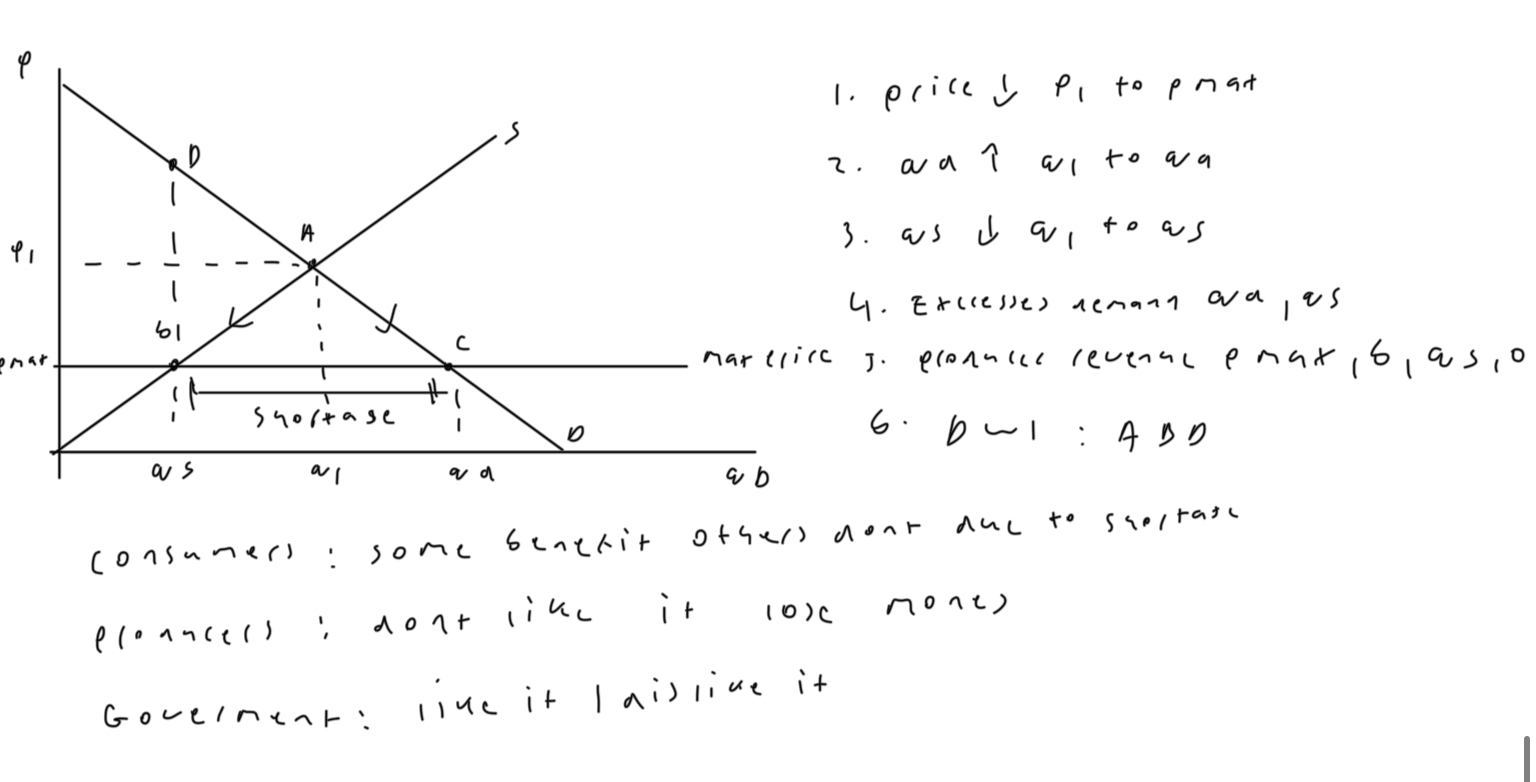 P
D
S
A
P1
b1
C
pmax
max price
shortage
D
qs
q1
qd
Q D
1. price ↓ P1 to pmax
2. Qd ↑ Q1 to Qd
3. Qs ↓ Q1 to Qs
4. Excesses demand Qd, Qs
5. producer revenue p max, b, Qs, 0
6. DWL : ABD
Consumers : some benefit others dont due to shortage
Producers : dont like it lose money
Goverment : like it / dislike it